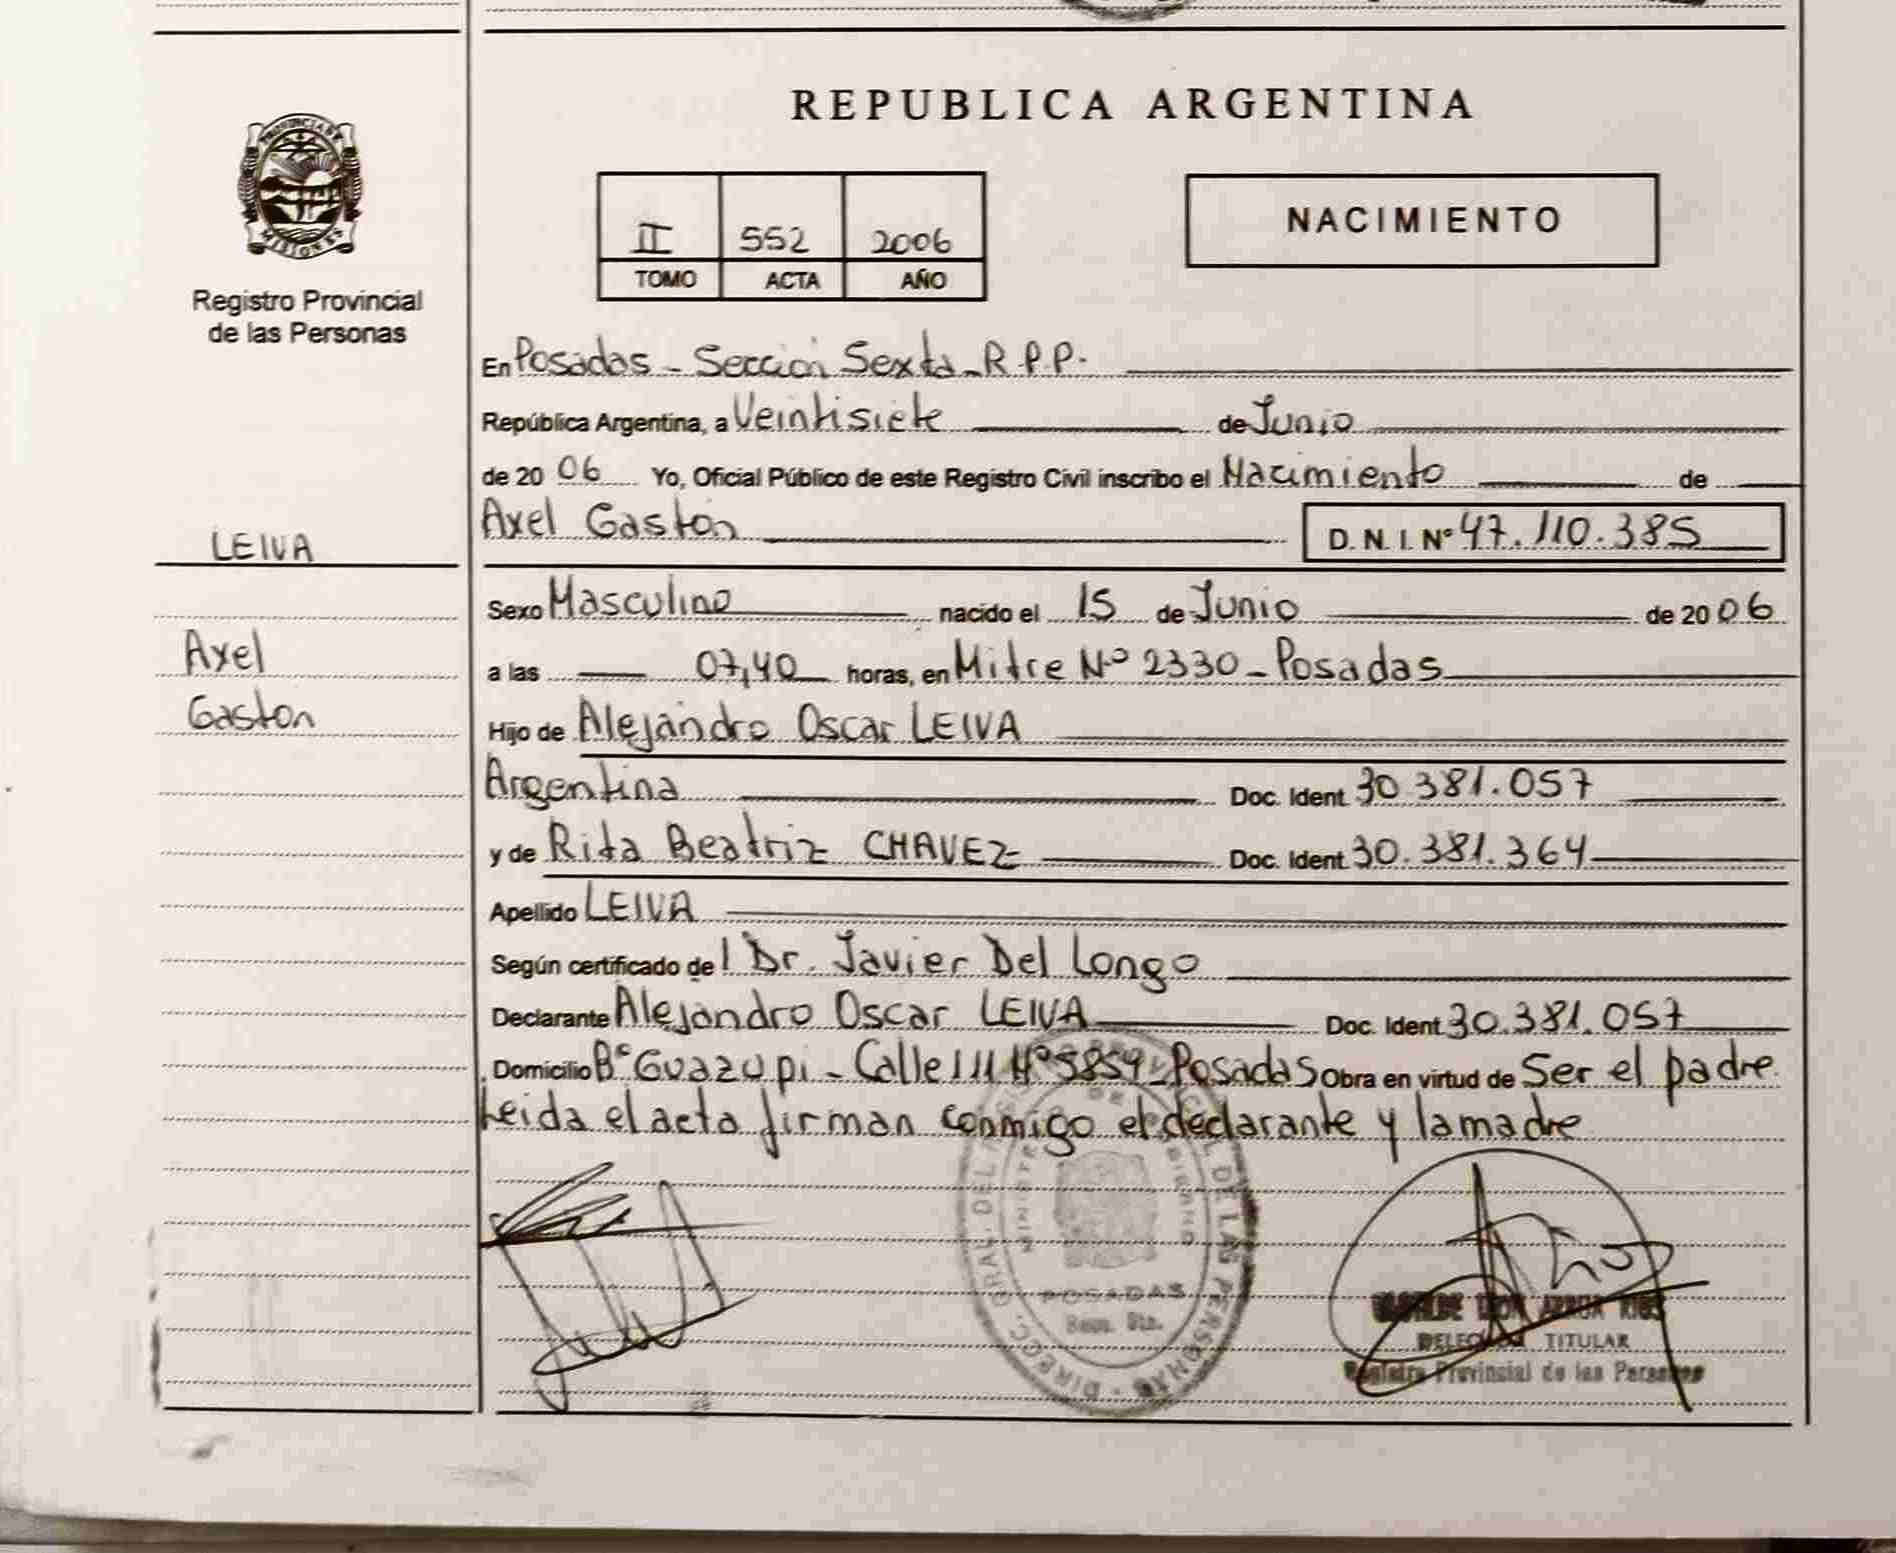 REPUBLICA ARGENTINA
PROVINCIA DE
MISIONES
Registro Provincial
de las Personas
II 552 2006
TOMO ACTA AÑO
NACIMIENTO
En Posadas - Sección Sexta - R.P.P.
República Argentina, a Veintisiete de Junio
de 20 06 Yo, Oficial Público de este Registro Civil inscribo el Nacimiento de
Axel Gastón D. N. I. Nº 47.110.385
LEIVA
Axel
Gastón
Sexo Masculino nacido el 15 de Junio de 20 06
a las 07,40 horas, en Mitre Nº 2330 - Posadas
Hijo de Alejandro Oscar LEIVA
Argentina Doc. Ident. 30.381.057
y de Rita Beatriz CHAVEZ Doc. Ident. 30.381.364
Apellido LEIVA
Según certificado de l Dr. Javier Del Longo
Declarante Alejandro Oscar LEIVA Doc. Ident. 30.381.057
Domicilio Bº Guazupi - Calle 111 Nº 5859 - Posadas Obra en virtud de Ser el padre
Leida el acta firman conmigo el declarante y la madre
DIRECC. GRAL. DEL REGISTRO PROVINCIAL DE LAS PERSONAS
MINISTERIO DE GOBIERNO
POSADAS
RIOS
TITULAR
Registro Provincial de las Personas